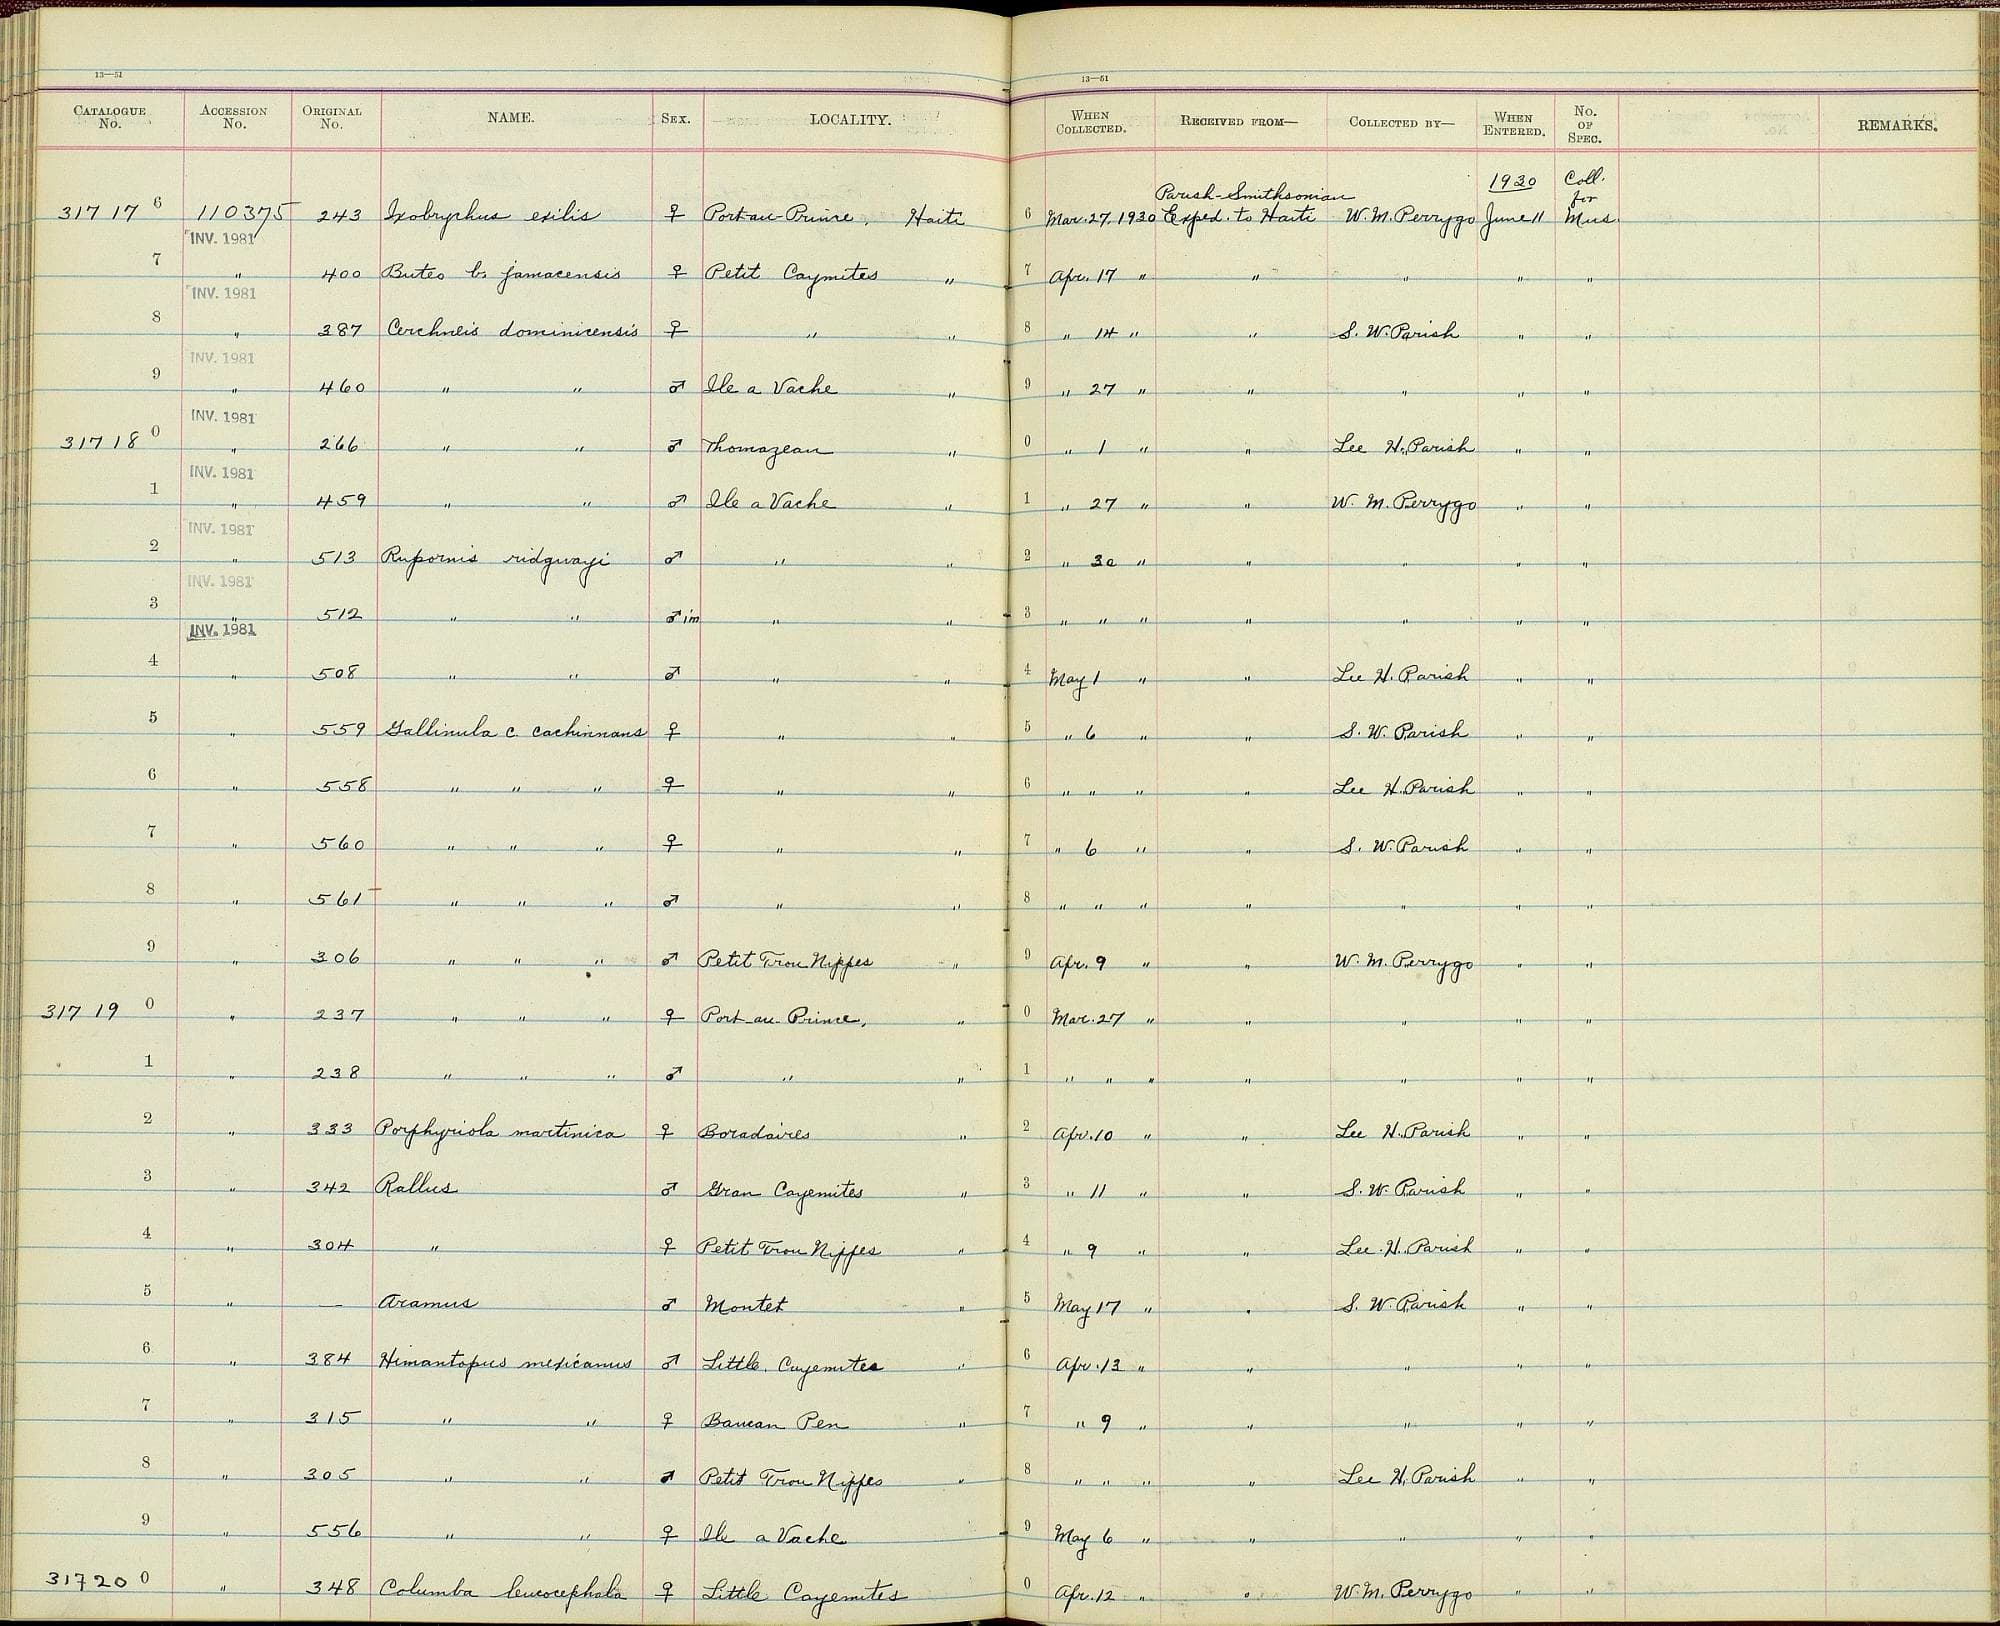 13—51 13—51
CATALOGUE No. ACCESSION No. ORIGINAL No. NAME. SEX. LOCALITY. WHEN COLLECTED. RECEIVED FROM— COLLECTED BY— WHEN ENTERED. No. OF SPEC. REMARKS.
1930 Coll.
Parish-Smithsonian for
31717 6 110375 243 Ixobrychus exilis ♀ Port-au-Prince, Haiti 6 Mar. 27, 1930 Exped. to Haiti W. M. Perrygo June 11 Mus.
INV. 1981
7 " 400 Buteo b. jamacensis ♀ Petit Caymites " 7 Apr. 17 " " " " "
INV. 1981
8 " 387 Cerchneis dominicensis ♀ " " 8 " 14 " " S. W. Parish " "
INV. 1981
9 " 460 " " ♂ Ile a Vache " 9 " 27 " " " " "
INV. 1981
31718 0 " 266 " " ♂ Thomazeau " 0 " 1 " " Lee H. Parish " "
INV. 1981
1 " 459 " " ♂ Ile a Vache " 1 " 27 " " W. M. Perrygo " "
INV. 1981
2 " 513 Rupornis ridgwayi ♂ " " 2 " 30 " " " " "
INV. 1981
3 " 512 " " ♂ im " " 3 " " " " " " "
INV. 1981
4 " 508 " " ♂ " " 4 May 1 " " Lee H. Parish " "
5 " 559 Gallinula c. cachinnans ♀ " " 5 " 6 " " S. W. Parish " "
6 " 558 " " " ♀ " " 6 " " " " Lee H. Parish " "
7 " 560 " " " ♀ " " 7 " 6 " " S. W. Parish " "
8 " 561 " " " ♂ " " 8 " " " " " " "
9 " 306 " " " ♂ Petit Trou Nippes " 9 Apr. 9 " " W. M. Perrygo " "
31719 0 " 237 " " " ♀ Port-au-Prince, " 0 Mar. 27 " " " " "
1 " 238 " " " ♂ " " 1 " " " " " " "
2 " 333 Porphyriola martinica ♀ Boradaires " 2 Apr. 10 " " Lee H. Parish " "
3 " 342 Rallus ♂ Gran Cayemites " 3 " 11 " " S. W. Parish " "
4 " 304 " ♀ Petit Trou Nippes " 4 " 9 " " Lee H. Parish " "
5 " — Aramus ♂ Montet " 5 May 17 " " S. W. Parish " "
6 " 384 Himantopus mexicanus ♂ Little Cayemites " 6 Apr. 13 " " " " "
7 " 315 " " ♀ Baucan Pen " 7 " 9 " " " " "
8 " 305 " " ♂ Petit Trou Nippes " 8 " " " " Lee H. Parish " "
9 " 556 " " ♀ Ile a Vache 9 May 6 " " " " "
31720 0 " 348 Columba leucocephala ♀ Little Cayemites 0 Apr. 12 " " W. M. Perrygo " "